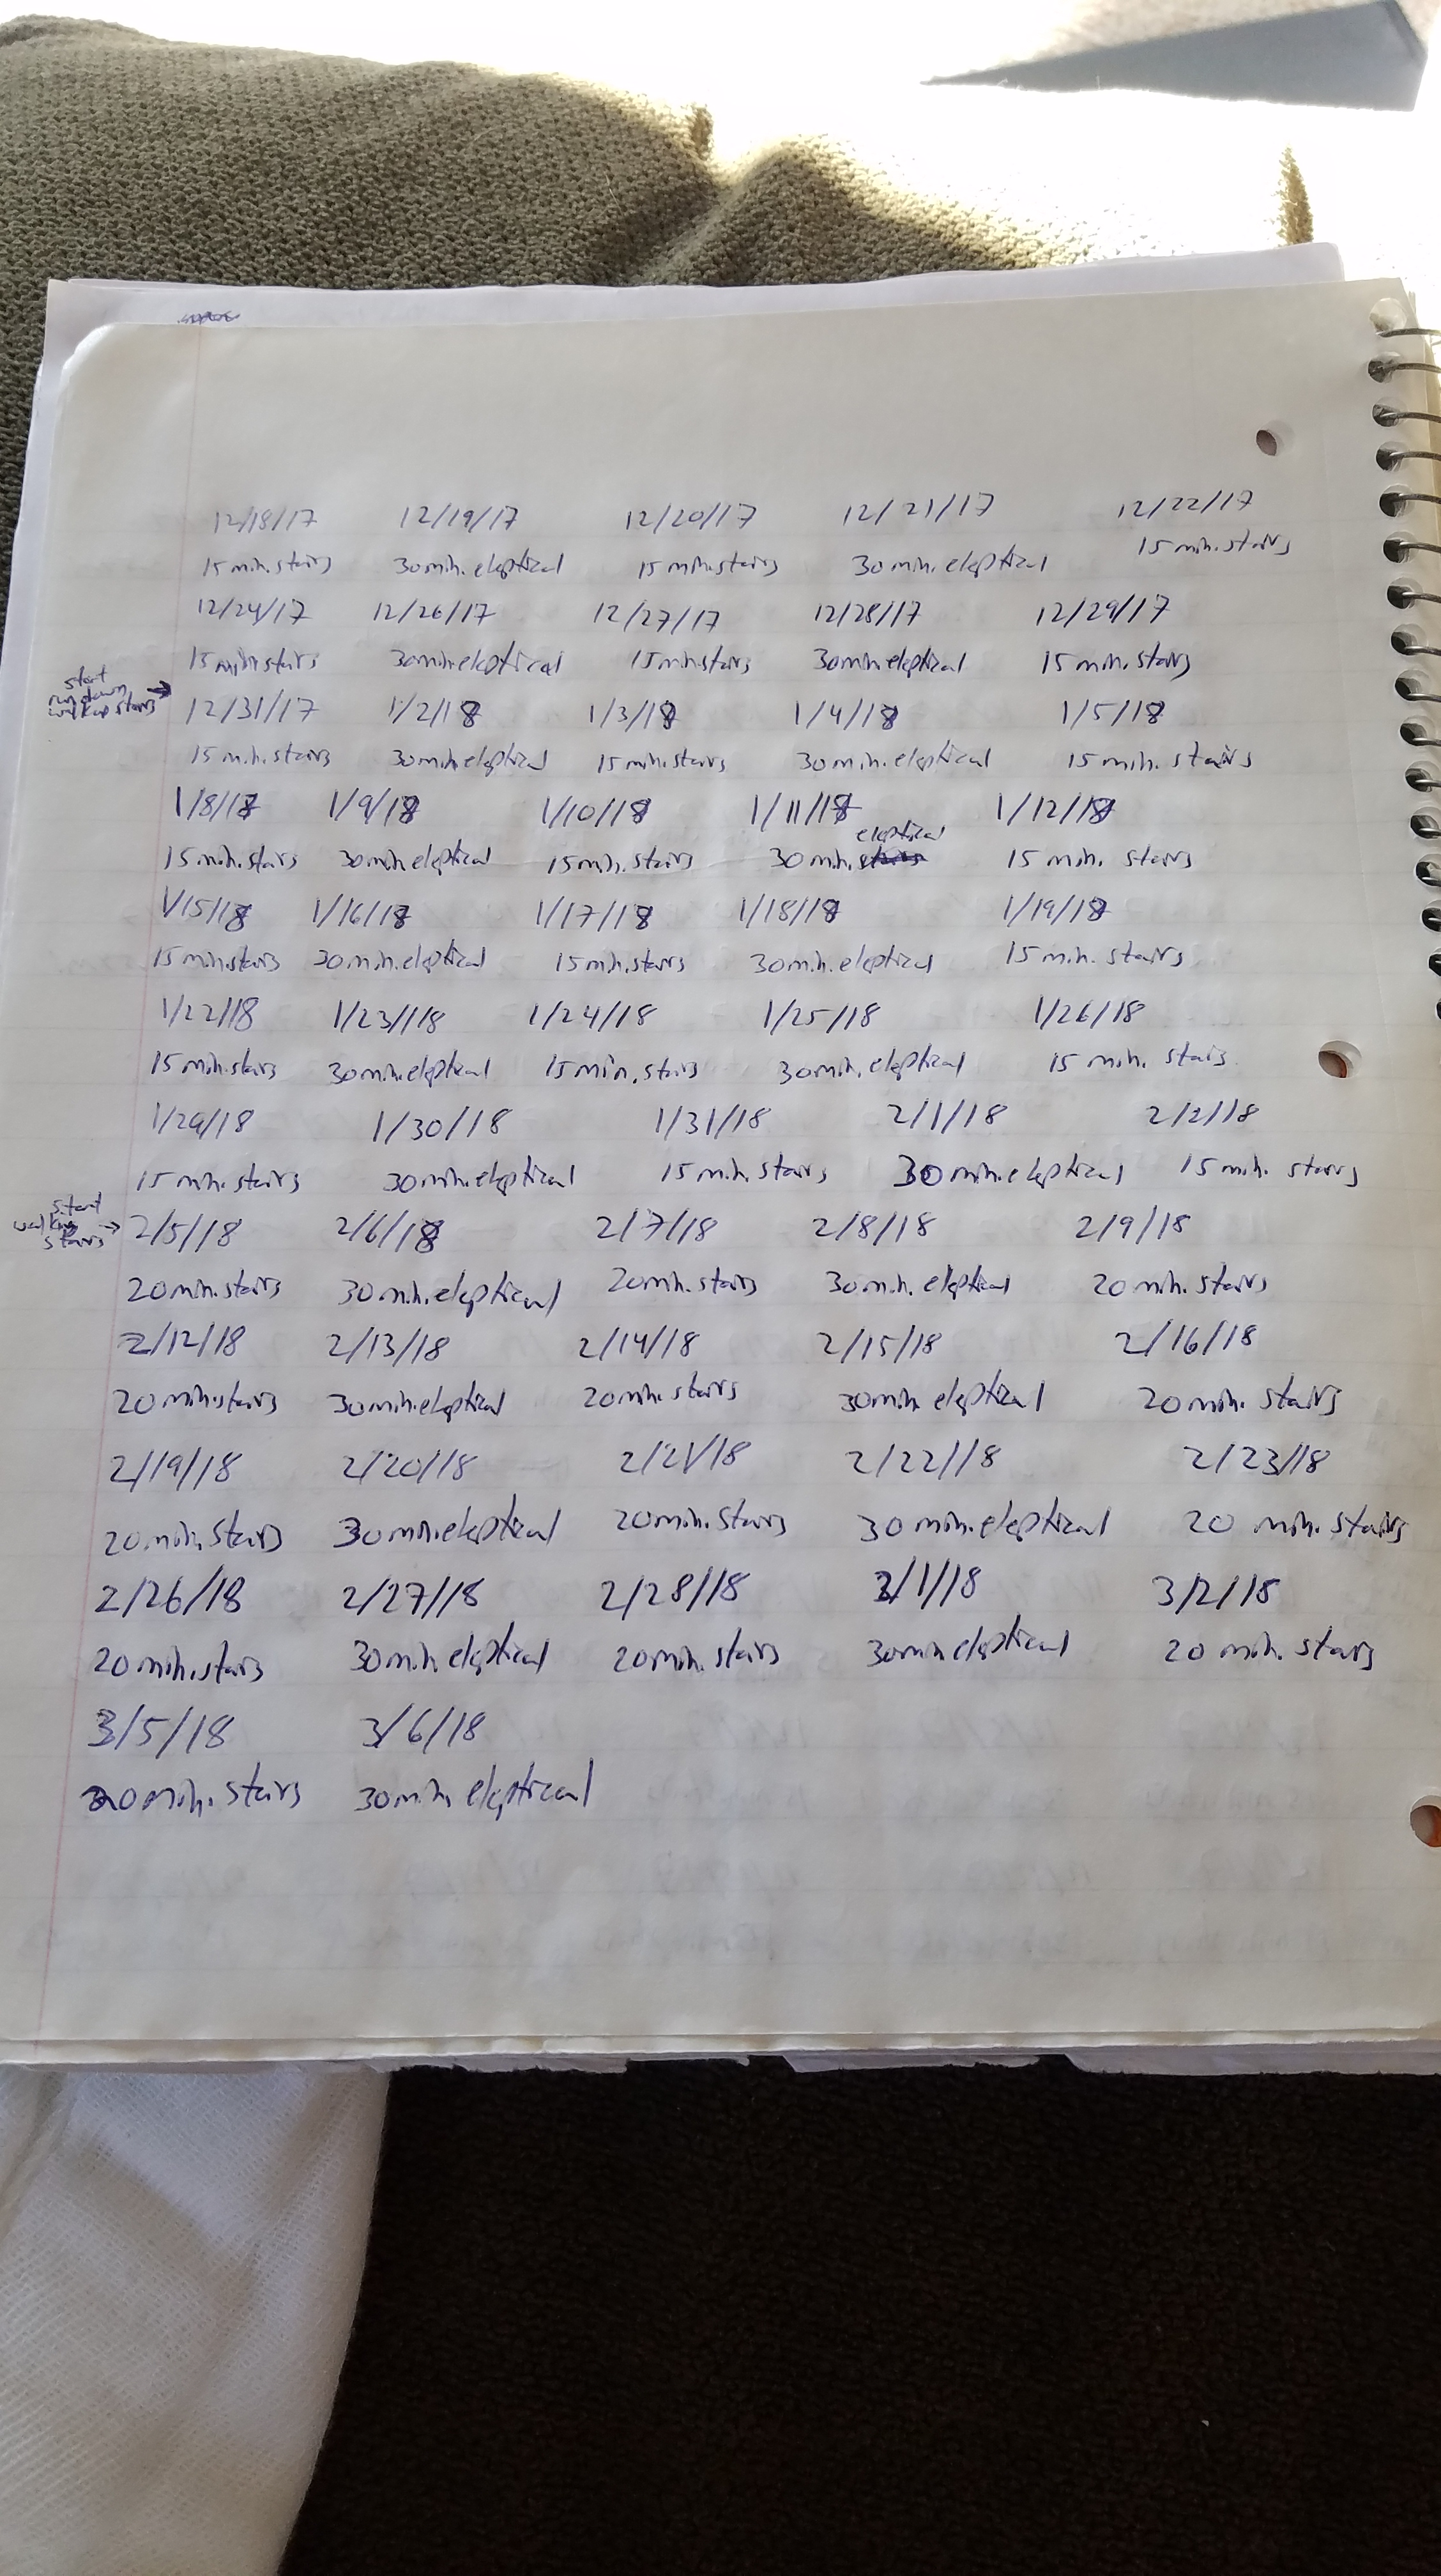 12/18/17 12/19/17 12/20/17 12/21/17 12/22/17
15 min. stairs 30 min. eleptical 15 min. stairs 30 min. eleptical 15 min. stairs
12/24/17 12/26/17 12/27/17 12/28/17 12/29/17
15 min. stairs 30 min. eleptical 15 min. stairs 30 min. eleptical 15 min. stairs
start
run down
walk up stairs →
12/31/17 1/2/18 1/3/18 1/4/18 1/5/18
15 min. stairs 30 min. eleptical 15 min. stairs 30 min. eleptical 15 min. stairs
1/8/18 1/9/18 1/10/18 1/11/18 1/12/18
eleptical
15 min. stairs 30 min. eleptical 15 min. stairs 30 min. stairs 15 min. stairs
1/15/18 1/16/18 1/17/18 1/18/18 1/19/18
15 min. stairs 30 min. eleptical 15 min. stairs 30 min. eleptical 15 min. stairs
1/22/18 1/23/18 1/24/18 1/25/18 1/26/18
15 min. stairs 30 min. eleptical 15 min. stairs 30 min. eleptical 15 min. stairs
1/29/18 1/30/18 1/31/18 2/1/18 2/2/18
15 min. stairs 30 min. eleptical 15 min. stairs 30 min. eleptical 15 min. stairs
start
walking →
stairs
2/5/18 2/6/18 2/7/18 2/8/18 2/9/18
20 min. stairs 30 min. eleptical 20 min. stairs 30 min. eleptical 20 min. stairs
2/12/18 2/13/18 2/14/18 2/15/18 2/16/18
20 min. stairs 30 min. eleptical 20 min. stairs 30 min eleptical 20 min. stairs
2/19/18 2/20/18 2/21/18 2/22/18 2/23/18
20 min. stairs 30 min. eleptical 20 min. stairs 30 min. eleptical 20 min. stairs
2/26/18 2/27/18 2/28/18 3/1/18 3/2/18
20 min. stairs 30 min. eleptical 20 min. stairs 30 min eleptical 20 min. stairs
3/5/18 3/6/18
20 min. stairs 30 min. eleptical